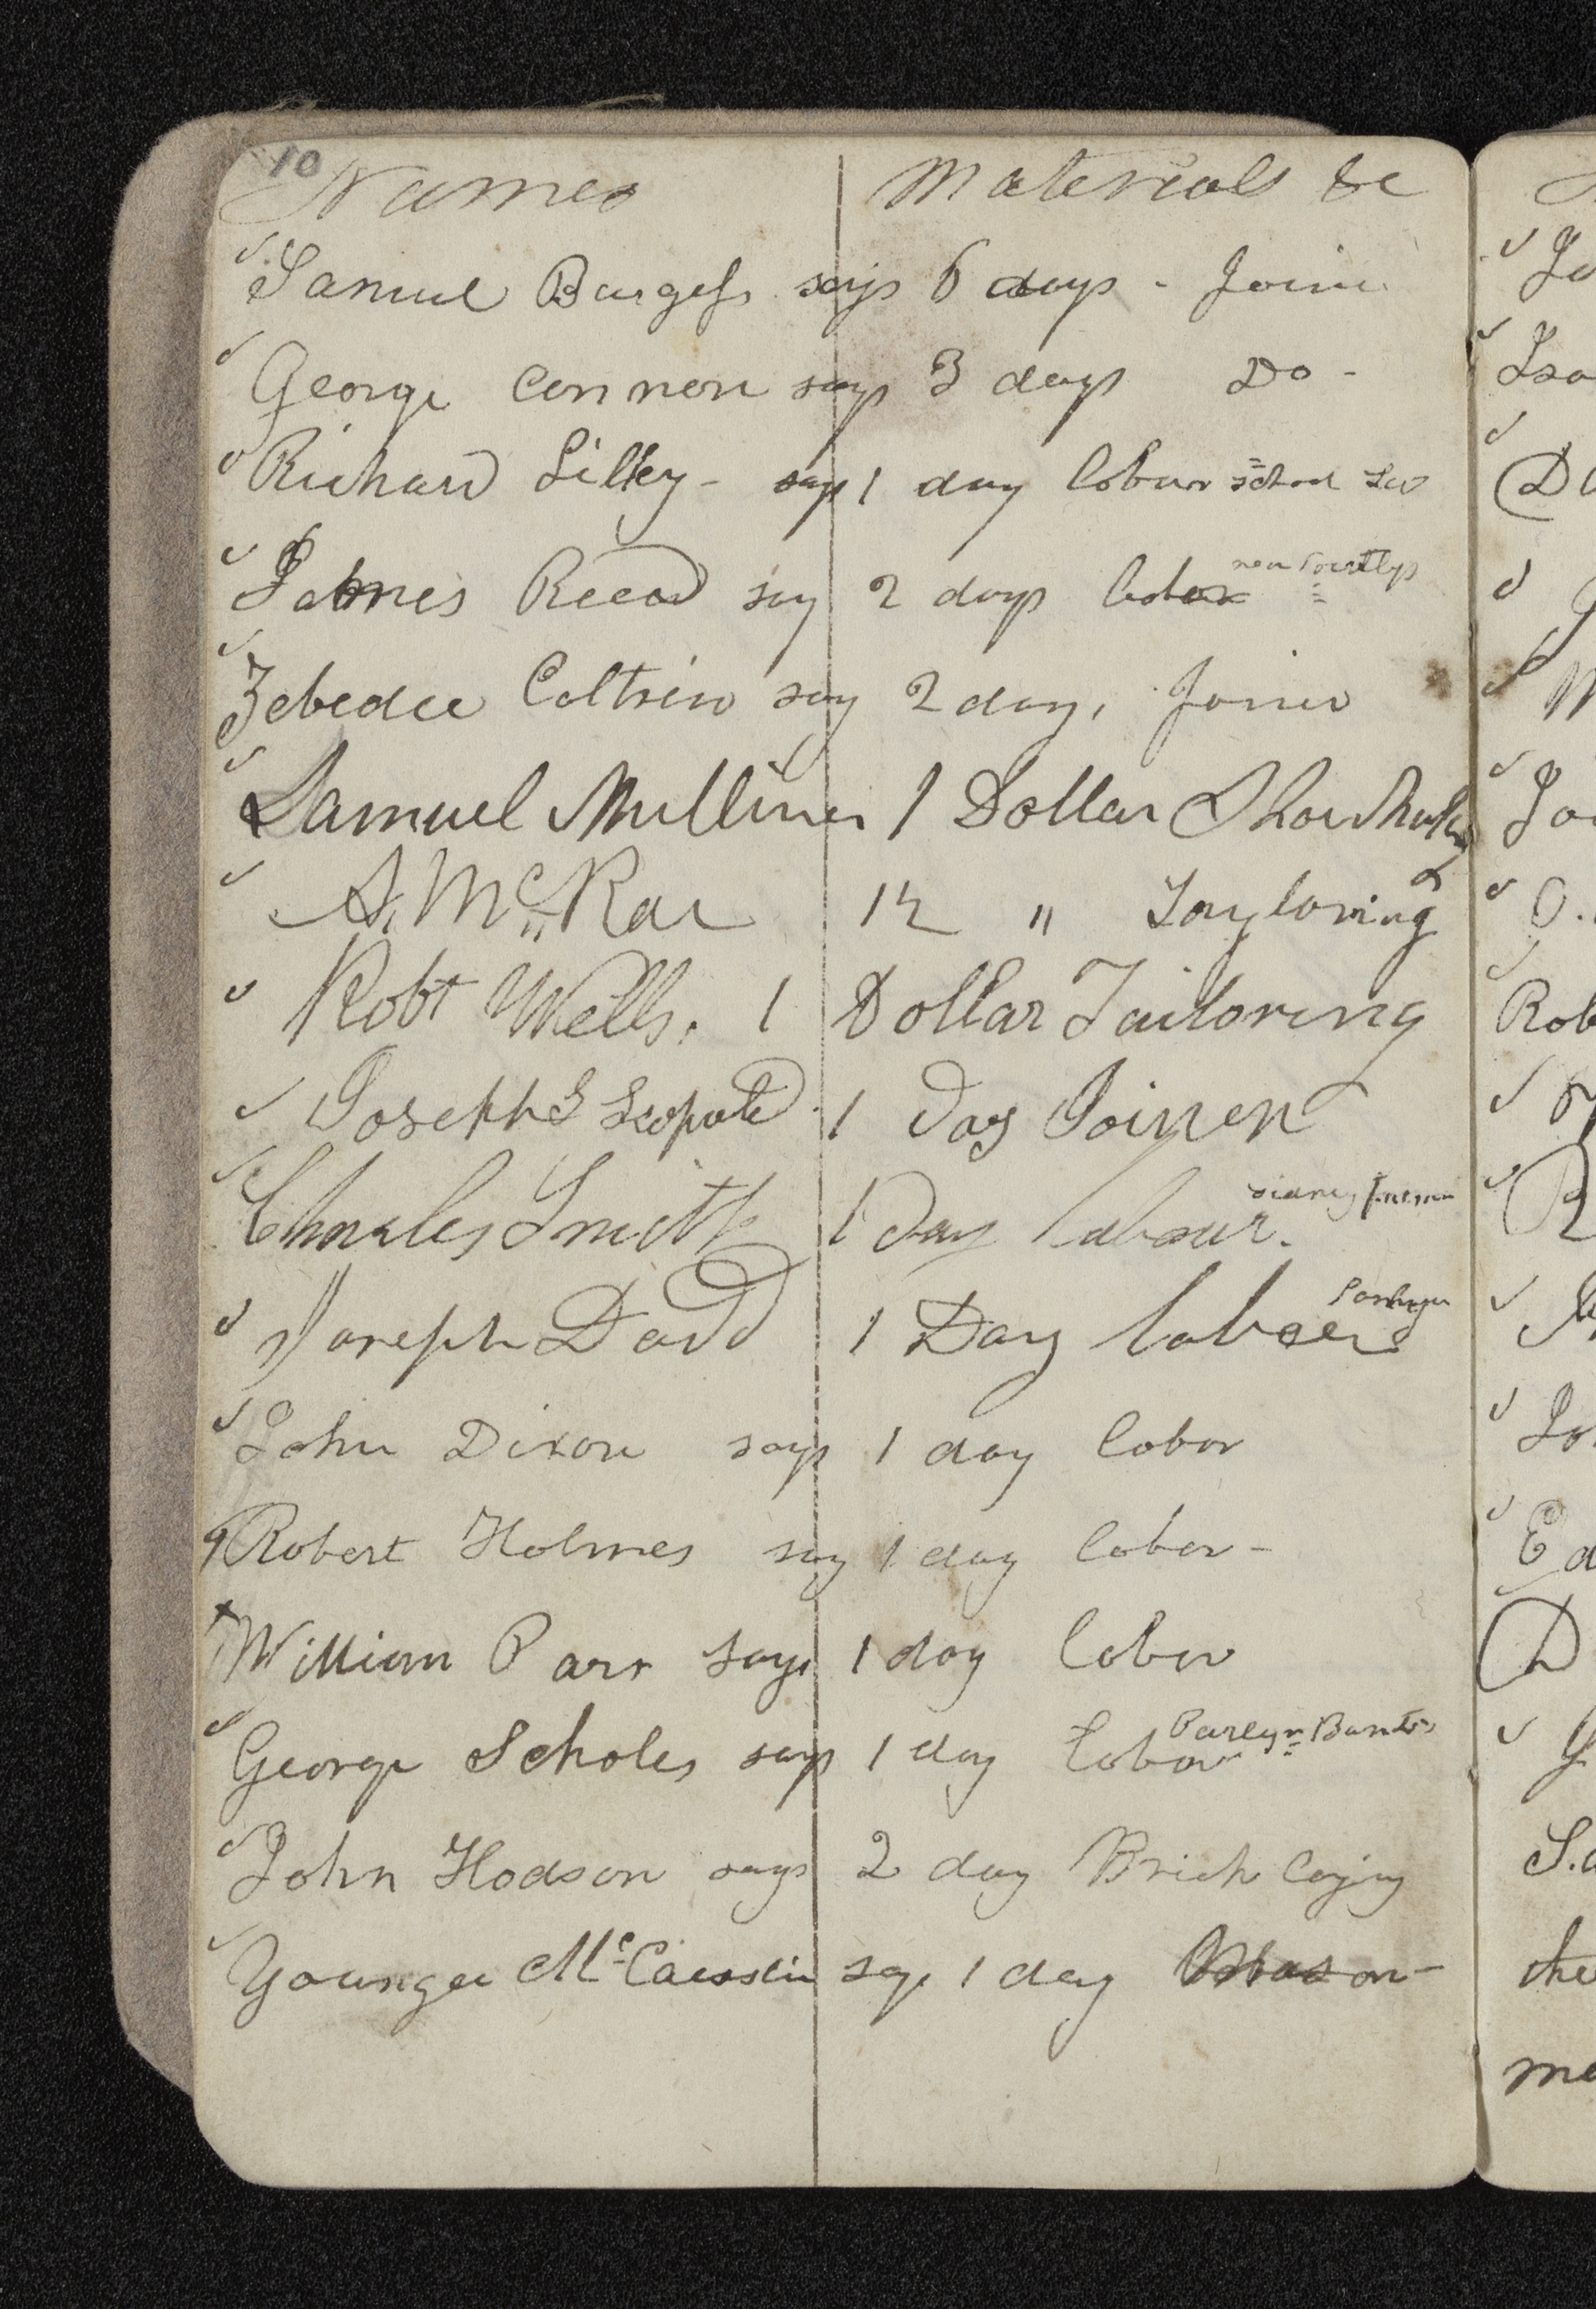 10
Names Materials &c
Samuel Burgess says 6 days - Joiner
George Connon says 3 days Do -
Richard Silkey - says 1 day labour
James Reead say 2 days labor
Zebedee Coltrin say 2 day, Joiner
Samuel Mulliner 1 Dollar
A. McRae 1½ " Tayloring
Robt Wells. 1 Dollar Tailoring
Joseph 1 Day Joiner
Charles Smith 1 Day labour.
Joseph David 1 Day labeer
John Dixon says 1 day labor
Robert Holmes say 1 day labor -
William Parr says 1 day labor
George Scholes says 1 day labor
John Hodson says 2 day Brick laying
Younger Mc say 1 day Mason -